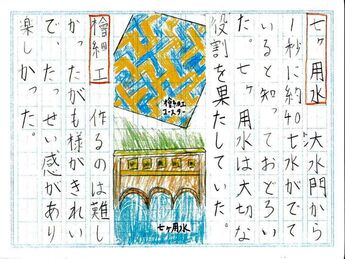 七ヶ用水 大水門から
1秒に約40t水がでて
いると知っておどろい
た。七ヶ用水は大切な
役割を果たしていた。
檜細工
コースター
七ヶ用水
檜細工 作るのは難し
かったがも様がきれい
で、たっせい感があり
楽しかった。